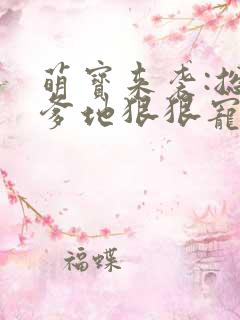 萌寶來袭:總
爹地狠狠寵
福蝶